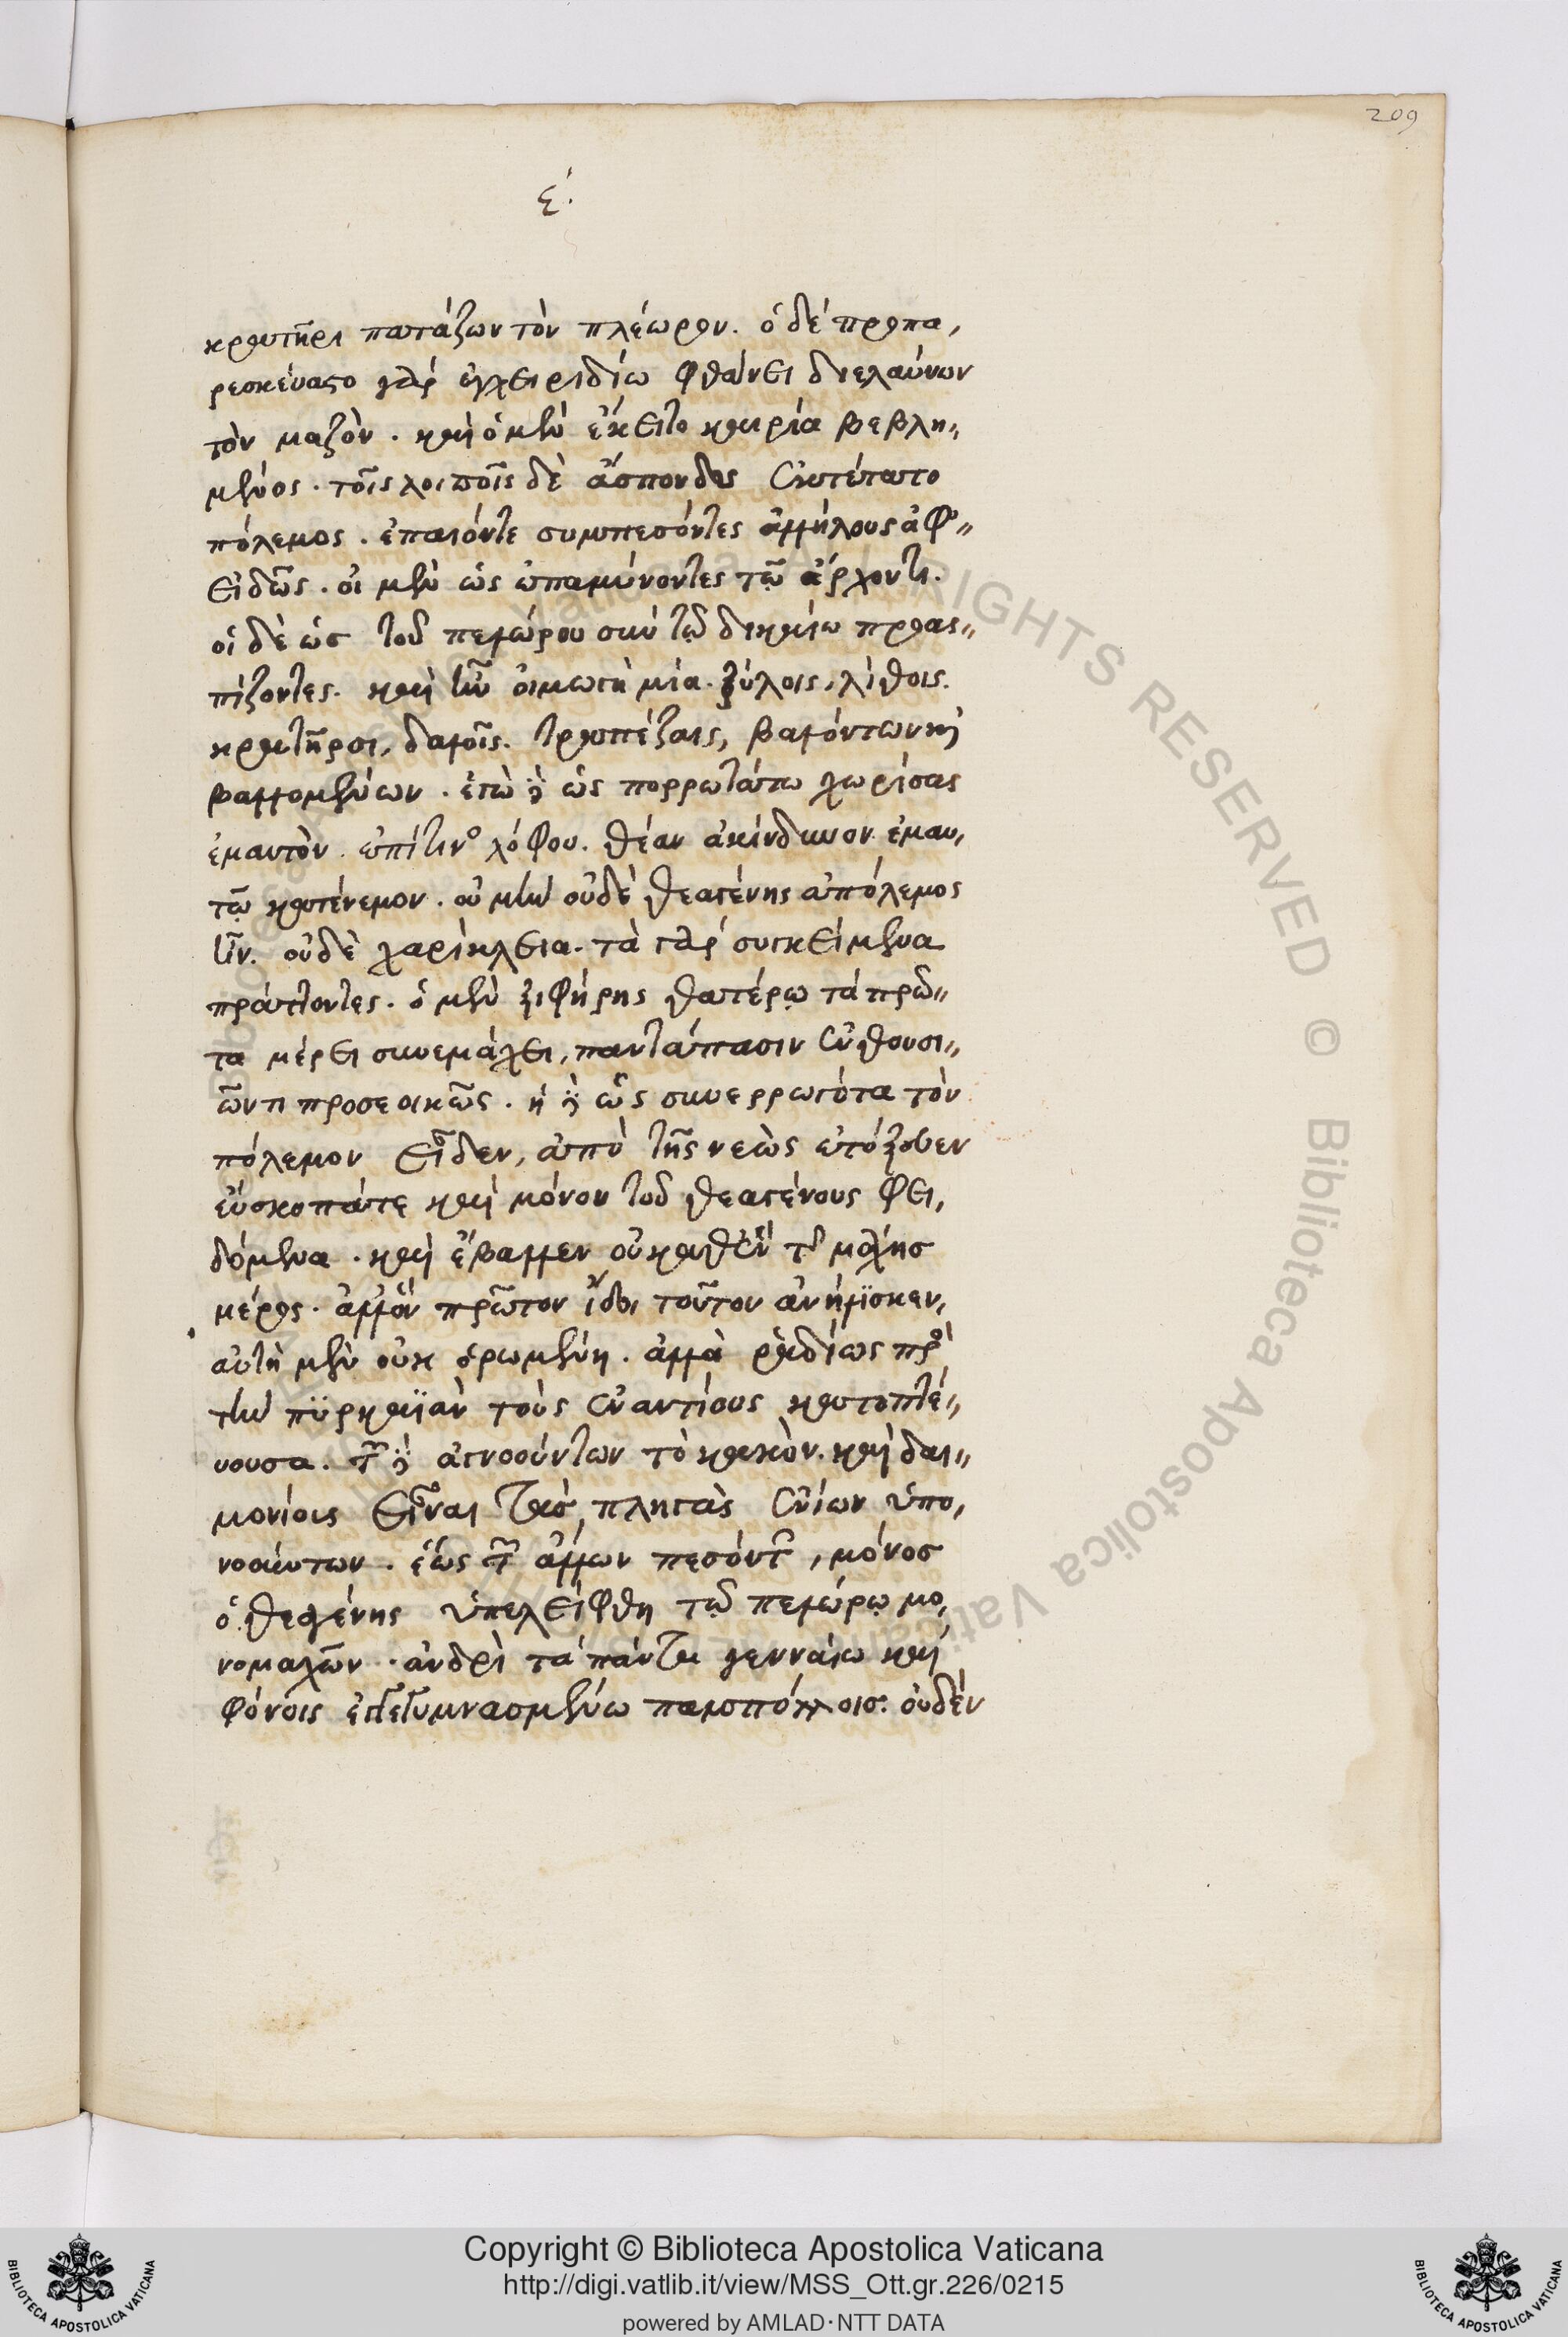 209
ε΄.
κρατῆρι πατάξων τὸν πλέωρον. ὁ δὲ προπα,
ρεσκεύαστο γὰρ ἐγχειριδίω φθάνει διελαύνων
τὸν μαζὸν. καὶ ὁ μὲν ἔκειτο καιρία βεβλη,,
μένος. τοῖς λοιποῖς δὲ ἄσπονδος ἐνστέτατο
πόλεμος. ἐπαιόντε συμπεσόντες ἀλλήλους ἀφ,,
ειδῶς. οἱ μὲν ὡς ἐπαμύνοντες τῷ ἄρχοντι.
οἱ δὲ ὡς τοῦ πελώρου σὺν τῷ δικαίω προας,,
πίζοντες. καὶ ἦν οἰμωγὴ μία. ξύλοις, λίθοις.
κρατῆρσι, δαλοῖς. τραπέζαις, βαλόντων καὶ
βαλλομένων. ἐγὼ δὲ ὡς πορρωτάτω χωρίσας
ἐμαυτὸν ἐπίτινο λόφου. θέαν ἀκίνδυνον ἐμαυ,
τῷ κατένεμον. οὐ μὴν οὐδὲ θεαγένης ἀπόλεμος
ἦν. οὐδὲ χαρίκλεια. τὰ γὰρ συγκείμενα
πράττοντες. ὁ μὲν ξιφήρης θατέρῳ τὰ πρῶ,,
τα μέρει συνεμάχει, παντάπασιν ἐνθουσι,,
ῶντι προσεοικῶς. ἡ δὲ ὡς συνερρωγότα τὸν
πόλεμον εἶδεν, ἀπὸ τῆς νεὼς ἐτόξευεν
εὔσκοπάτε καὶ μόνον τοῦ θεαγένους φει,
δόμενα. καὶ ἔβαλλεν οὐ καθ᾽ ἓν τῆς μάχης
μέρος. ἀλλ᾽ ὃν πρῶτον ἴδοι τοῦτον ἀνήλϊσκεν,
αὐτὴ μὲν οὐκ ὁρωμένη. ἀλλὰ ῥαδίως πρὸς
τὴν πϋρκαϊὰν τοὺς ἐναντίους κατοπτέ,,
υουσα. τῶν δὲ ἀγνοούντων τὸ κακὸν. καὶ δαι,,
μονίοις εἶναι τὰς πληγὰς ἐνίων ὑπο,
νοούντων. ἕως τῶν ἄλλων πεσόντων, μόνος
ὁ θεαγένης ὑπελείφθη τῷ πελώρῳ μο,
νομαχῶν. ἀνδρὶ τὰ πάντα γενναίω καὶ
φόνοις ἐγγεγυμνασμένω παμπόλλοις. οὐδὲν
Copyright © Biblioteca Apostolica Vaticana
http://digi.vatlib.it/view/MSS_Ott.gr.226/0215
powered by AMLAD·NTT DATA